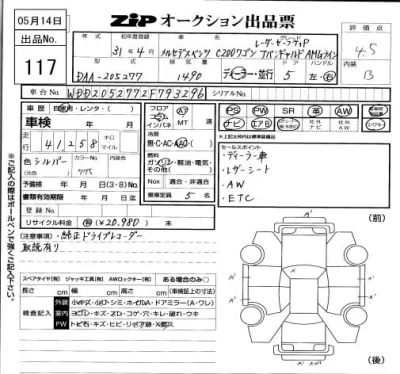 05月14日
ZIP オークション出品票
出品No.
117
年式
車名・グレード
ドア
ハンドル
評価点
31年4月
メルセデスベンツ C200ワゴン
レーザーセーフティP
アバンギャルド AMGライン
4.5
型式
排気量
DAA-205277
1490
ディーラー・並行
5
左・右
内装
B
車台No.
WDD2052772F793296
シリアルNo.
車歴
自家用・レンタ・( )
車検
年 月
走行
41258
キロ
マイル
色 シルバー
(元色)
カラーNo.
775
予備検 年 月 日(3・8)No.
書類有効期限 年 月 日
登録No.
リサイクル料金
¥20,980
フロア
コラム
インパネ
AT
MT
速
冷房
無・C・AC・AAC
燃料
ガソリン・軽油・電気・
その他( )
NOX 適合・非適合
乗車定員 5 名
PS
PW
SR
革
AW
ナビ
エアB
TV
社外
社外
※上記太枠内は標準装備品
セールスポイント
・ディーラー車
・レザーシート
・AW
・ETC
(注意事項)
・純正ドライブレコーダー
取説有り
スペアタイヤ(有) ジャッキ工具(有) AWロックキー(有) ある場合のみ○
長さ cm 幅 cm 高さ cm (車検証上の寸法)
検査記入
外装
小キズ・小凹・シミ・ホイルA・ドアミラー(A・ワレ)
室内
ヨゴレ・キズ・スレ・コゲ・穴・キレ・破れ・ウキ
FW
トビ石・キズ・ヒビ・リペア跡・X要交
※ご記入の際はボールペンで強くご記入下さい。
(前)
(後)